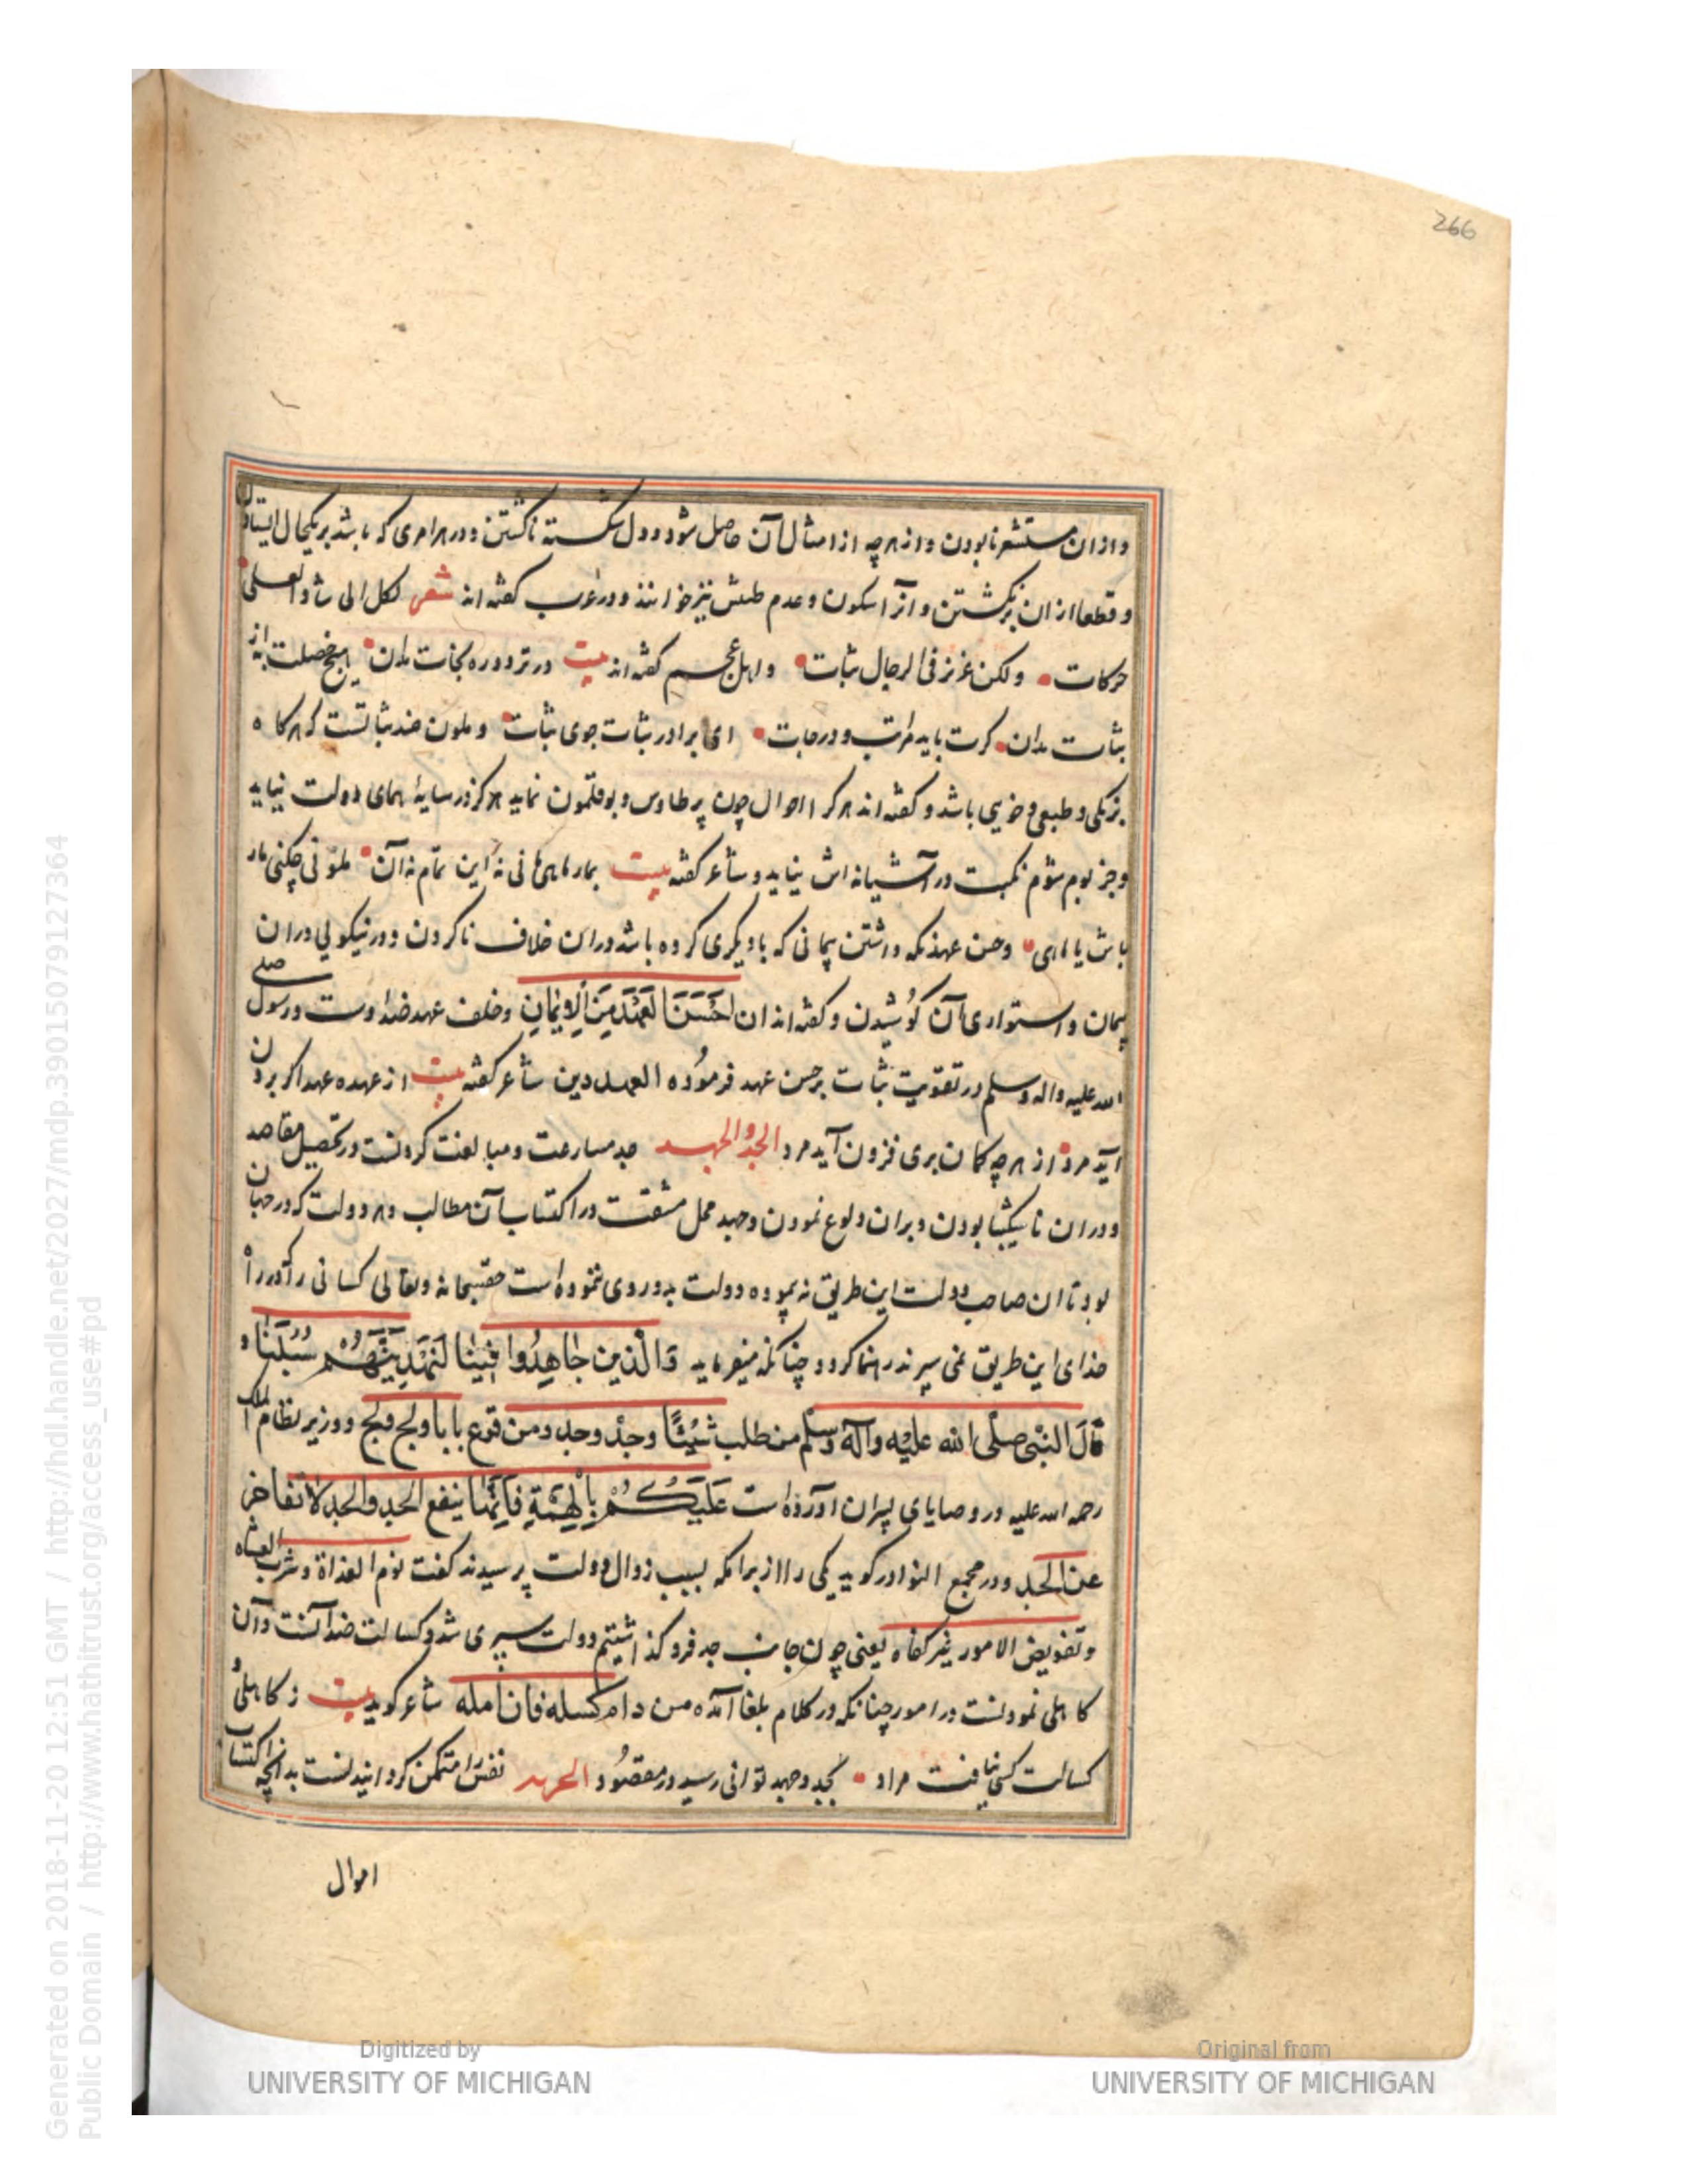 266
وازان مستشعر نابودن واز هرچه از امثال آن حاصل شود دل شکسته ناکشتن ودر هر امری که باشد بریکحال ایستادن
وقطعا ازان برنکشتن وآنرا سکون وعدم طیش نیز خوانند ودر عرب کفته اند شعر لکل الی شاو العلی
حرکات ولکن عزیز فی الرجال ثبات واهل عجم کفته اند بیت در تردد ره نجات مدان هیچ خصلت به از
ثبات مدان کرت باید مراتب ودرجات ای برادر ثبات جوی ثبات وملون ضد ثباتست که هرکاه
برنکی وطبعی وخویی باشد وکفته اند هر کرا احوال چون پر طاوس وبوقلمون نماید هرکز در سایهٔ همای دولت نیاید
وجز بوم شوم نکبت در آشیانه اش نیاید وشاعر کفته بیت بمارماهی مانی نه این تمام نه آن ملونی چکنی مار
باش یا ماهی وحسن عهد نکه داشتن پیمانی که با دیکری کرده باشد دران خلاف ناکردن ودر نیکویی دران
پیمان واستواری آن کوشیدن وکفته اند ان لحسن العهد من الایمان وخلف عهد ضد اوست ورسول صلی
الله علیه واله وسلم در تقویت ثبات بر حسن عهد فرموده العهد دین شاعر کفته بیت از عهده عهد اکر برون
آید مرد از هرچه کمان بری فزون آید مرد الجد والجهد جد مسارعت ومبالغت کردنست در تحصیل مقاصد
ودران ناشکیبا بودن وبران ولوع نمودن وجهد تحمل مشقت در اکتساب آن مطالب وهر دولت که در جهان
بود تا ان صاحب دولت این طریق نه پیموده دولت بدو روی ننموده است حقسبحانه وتعالی کسانی را که در راه
خدای این طریق می سپرند رهنما کردد چنانکه میفرماید والذین جاهدوا فینا لنهدینهم سبلنا و
قال النبی صلی الله علیه وآله وسلم من طلب شیئا وجد وجد ومن قرع بابا ولج ولج ووزیر نظام الملک
رحمه الله علیه در وصایای پسران آورده است علیکم بالهمة فانما ینفع الجد والجد لا تفاخر
عن الجد ودر مجمع النوادر کوید یکی را از برامکه بسبب زوال دولت پرسیدند کفت نوم الغداة وشرب العشاه
وتفویض الامور غیر کفاه یعنی چون جانب جد فرو کذاشتیم دولت سپری شد وکسالت ضد آنست وآن
کاهلی نمودنست در امور چنانکه در کلام بلغا آمده من دام کسله فان امله شاعر کوید بیت ز کاهلی و
کسالت کسی نیافت مراد بجد وجهد توانی رسید در مقصود الحریه نفس را متمکن کردانیدنست بدانچه از اکتساب
اموال
Generated on 2018-11-20 12:51 GMT / http://hdl.handle.net/2027/mdp.39015079127364
Public Domain / http://www.hathitrust.org/access_use#pd
Digitized by
UNIVERSITY OF MICHIGAN
Original from
UNIVERSITY OF MICHIGAN